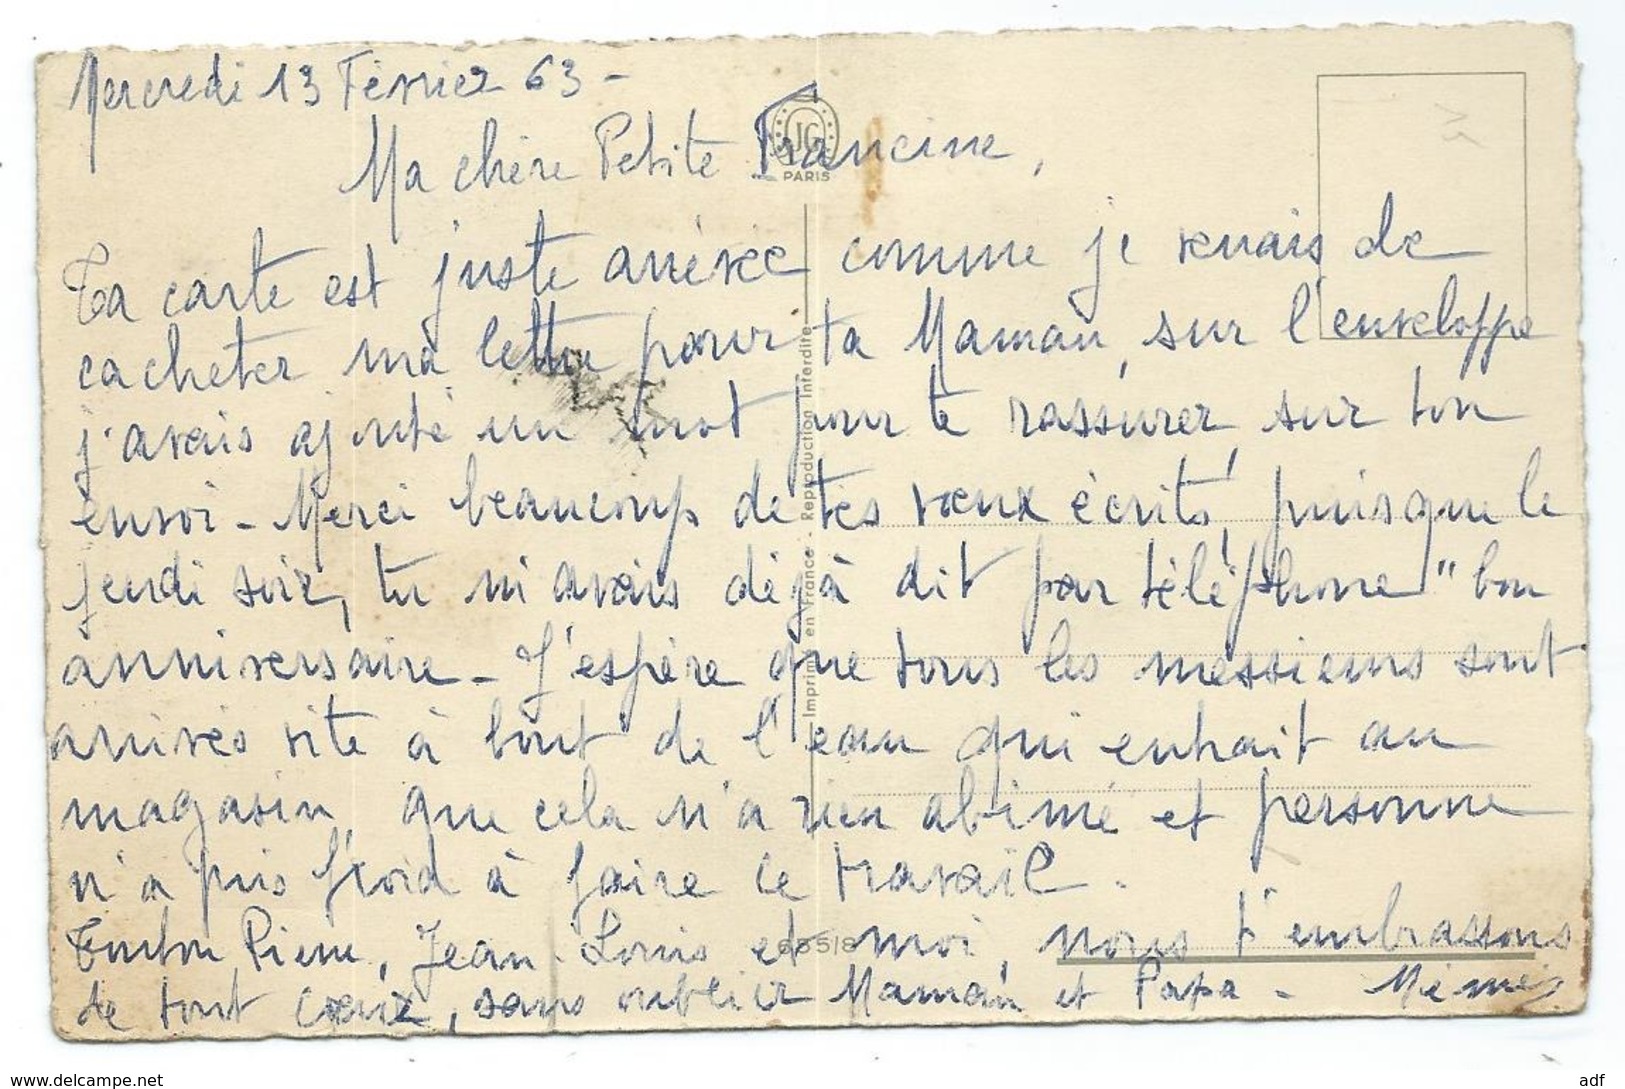 Mercredi 13 Février 63 -
Ma chère Petite Francine,
JG
PARIS
Ta carte est juste arrivée comme je venais de
cacheter ma lettre pour ta Maman, sur l'enveloppe
j'avais ajouté un mot pour te rassurer, sur ton
envoi - Merci beaucoup de tes vœux écrits, puisque le
jeudi soir, tu m'avais déjà dit par téléphone "bon
anniversaire - J'espère que tous les messieurs sont
arrivés vite à bout de l'eau qui entrait au
magasin, que cela n'a rien abîmé et personne
n'a pris froid à faire ce travail.
Tonton Pierre, Jean-Louis et moi, nous t'embrassons
de tout cœur, sans oublier Maman et Papa - Mémé
Imprimé en France - Reproduction Interdite
685/8
delcampe.net
adf